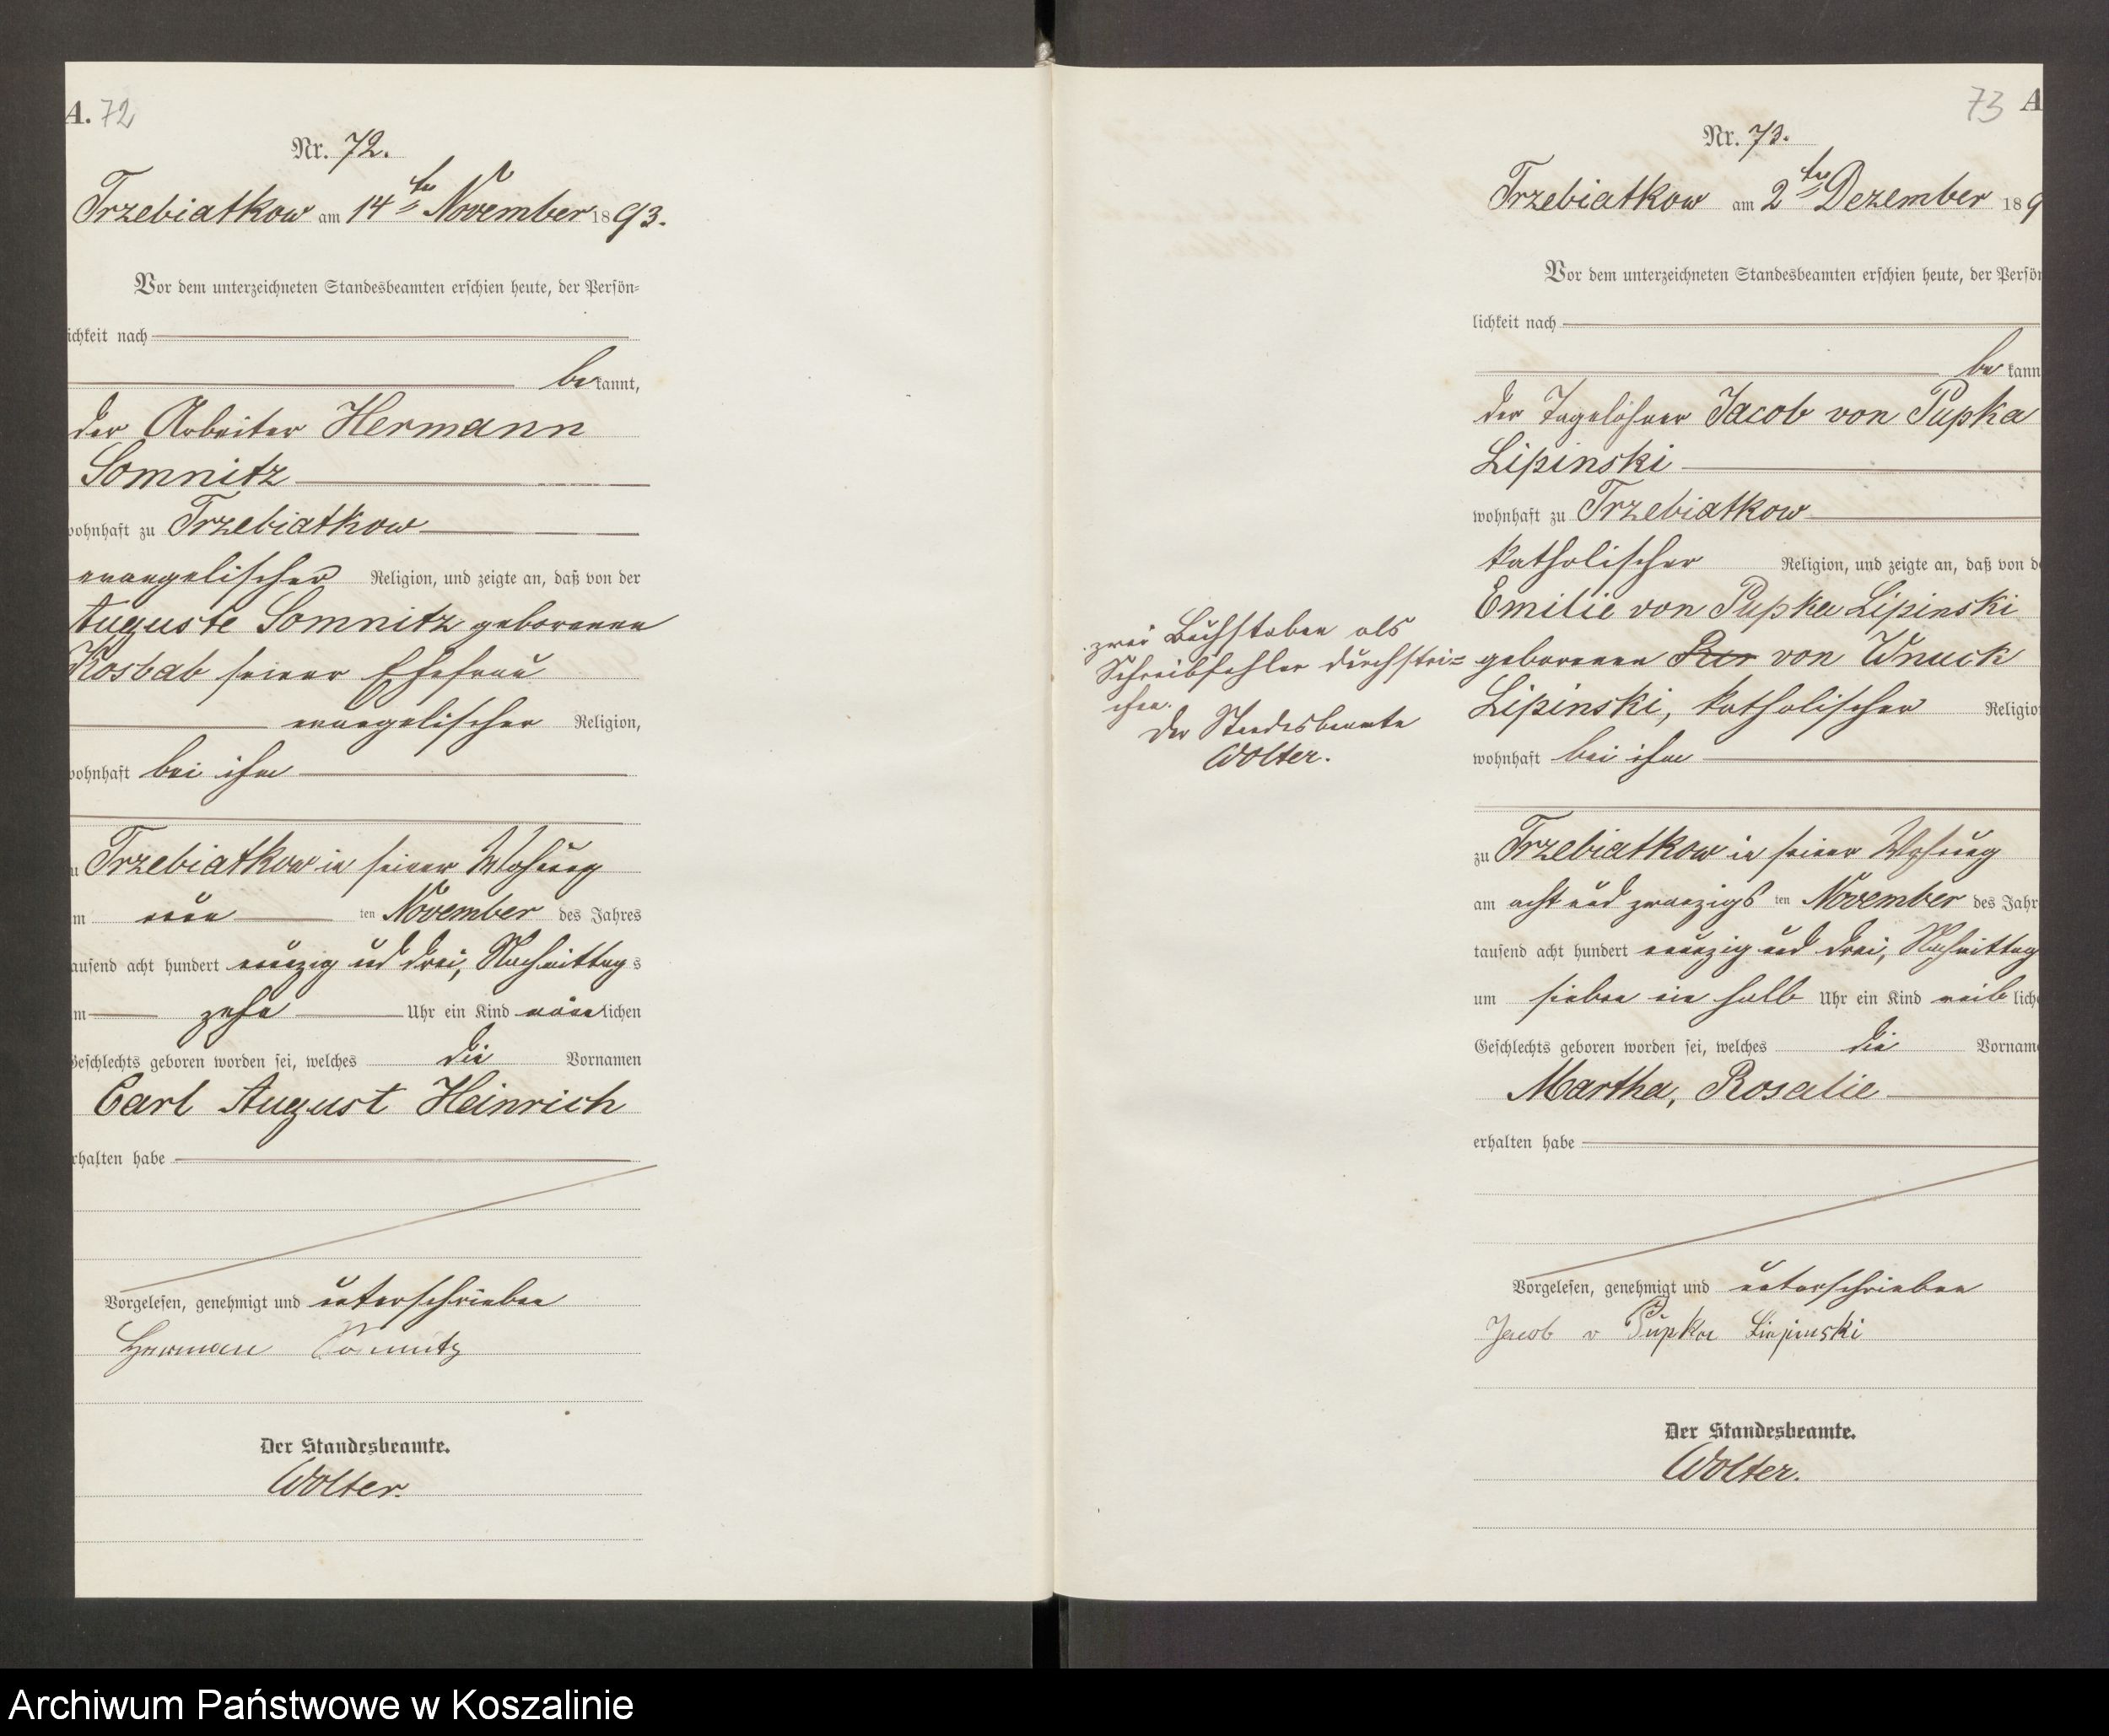 A. 72
Nr. 72.
Trzebiatkow am 14ten November 1893.
Vor dem unterzeichneten Standesbeamten erschien heute, der Persön-
ichkeit nach
bekannt,
der Arbeiter Hermann
Somnitz
wohnhaft zu Trzebiatkow
evangelischer Religion, und zeigte an, daß von der
Auguste Somnitz geborenen
Kosbab seiner Ehefrau
evangelischer Religion,
wohnhaft bei ihm
u Trzebiatkow in seiner Wohnung
m neun ten November des Jahres
ausend acht hundert neunzig und drei, Nachmittags
m zehn Uhr ein Kind männlichen
Geschlechts geboren worden sei, welches die Vornamen
Carl August Heinrich
rhalten habe
Vorgelesen, genehmigt und unterschrieben
Herman Somnitz
Der Standesbeamte.
Wolter.
73 A
Nr. 73.
Trzebiatkow am 2ten Dezember 189
Vor dem unterzeichneten Standesbeamten erschien heute, der Persön
lichkeit nach
bekann
der Tagelöhner Jacob von Pupka
Lipinski
wohnhaft zu Trzebiatkow
katholischer Religion, und zeigte an, daß von d
Emilie von Pupka Lipinski
geborenen Ker von Wnuck
Lipinski, katholischer Religio
wohnhaft bei ihm
zwei Buchstaben als
Schreibfehler durchstri=
chen.
Der Standesbeamte
Wolter.
zu Trzebiatkow in seiner Wohnung
am acht und zwanzigs ten November des Jahr
tausend acht hundert neunzig und drei, Nachmittag
um sieben ein halb Uhr ein Kind weiblich
Geschlechts geboren worden sei, welches die Vornam
Martha, Rosalie
erhalten habe
Vorgelesen, genehmigt und unterschrieben
Jacob v Pupka Liepinski
Der Standesbeamte.
Wolter.
Archiwum Państwowe w Koszalinie